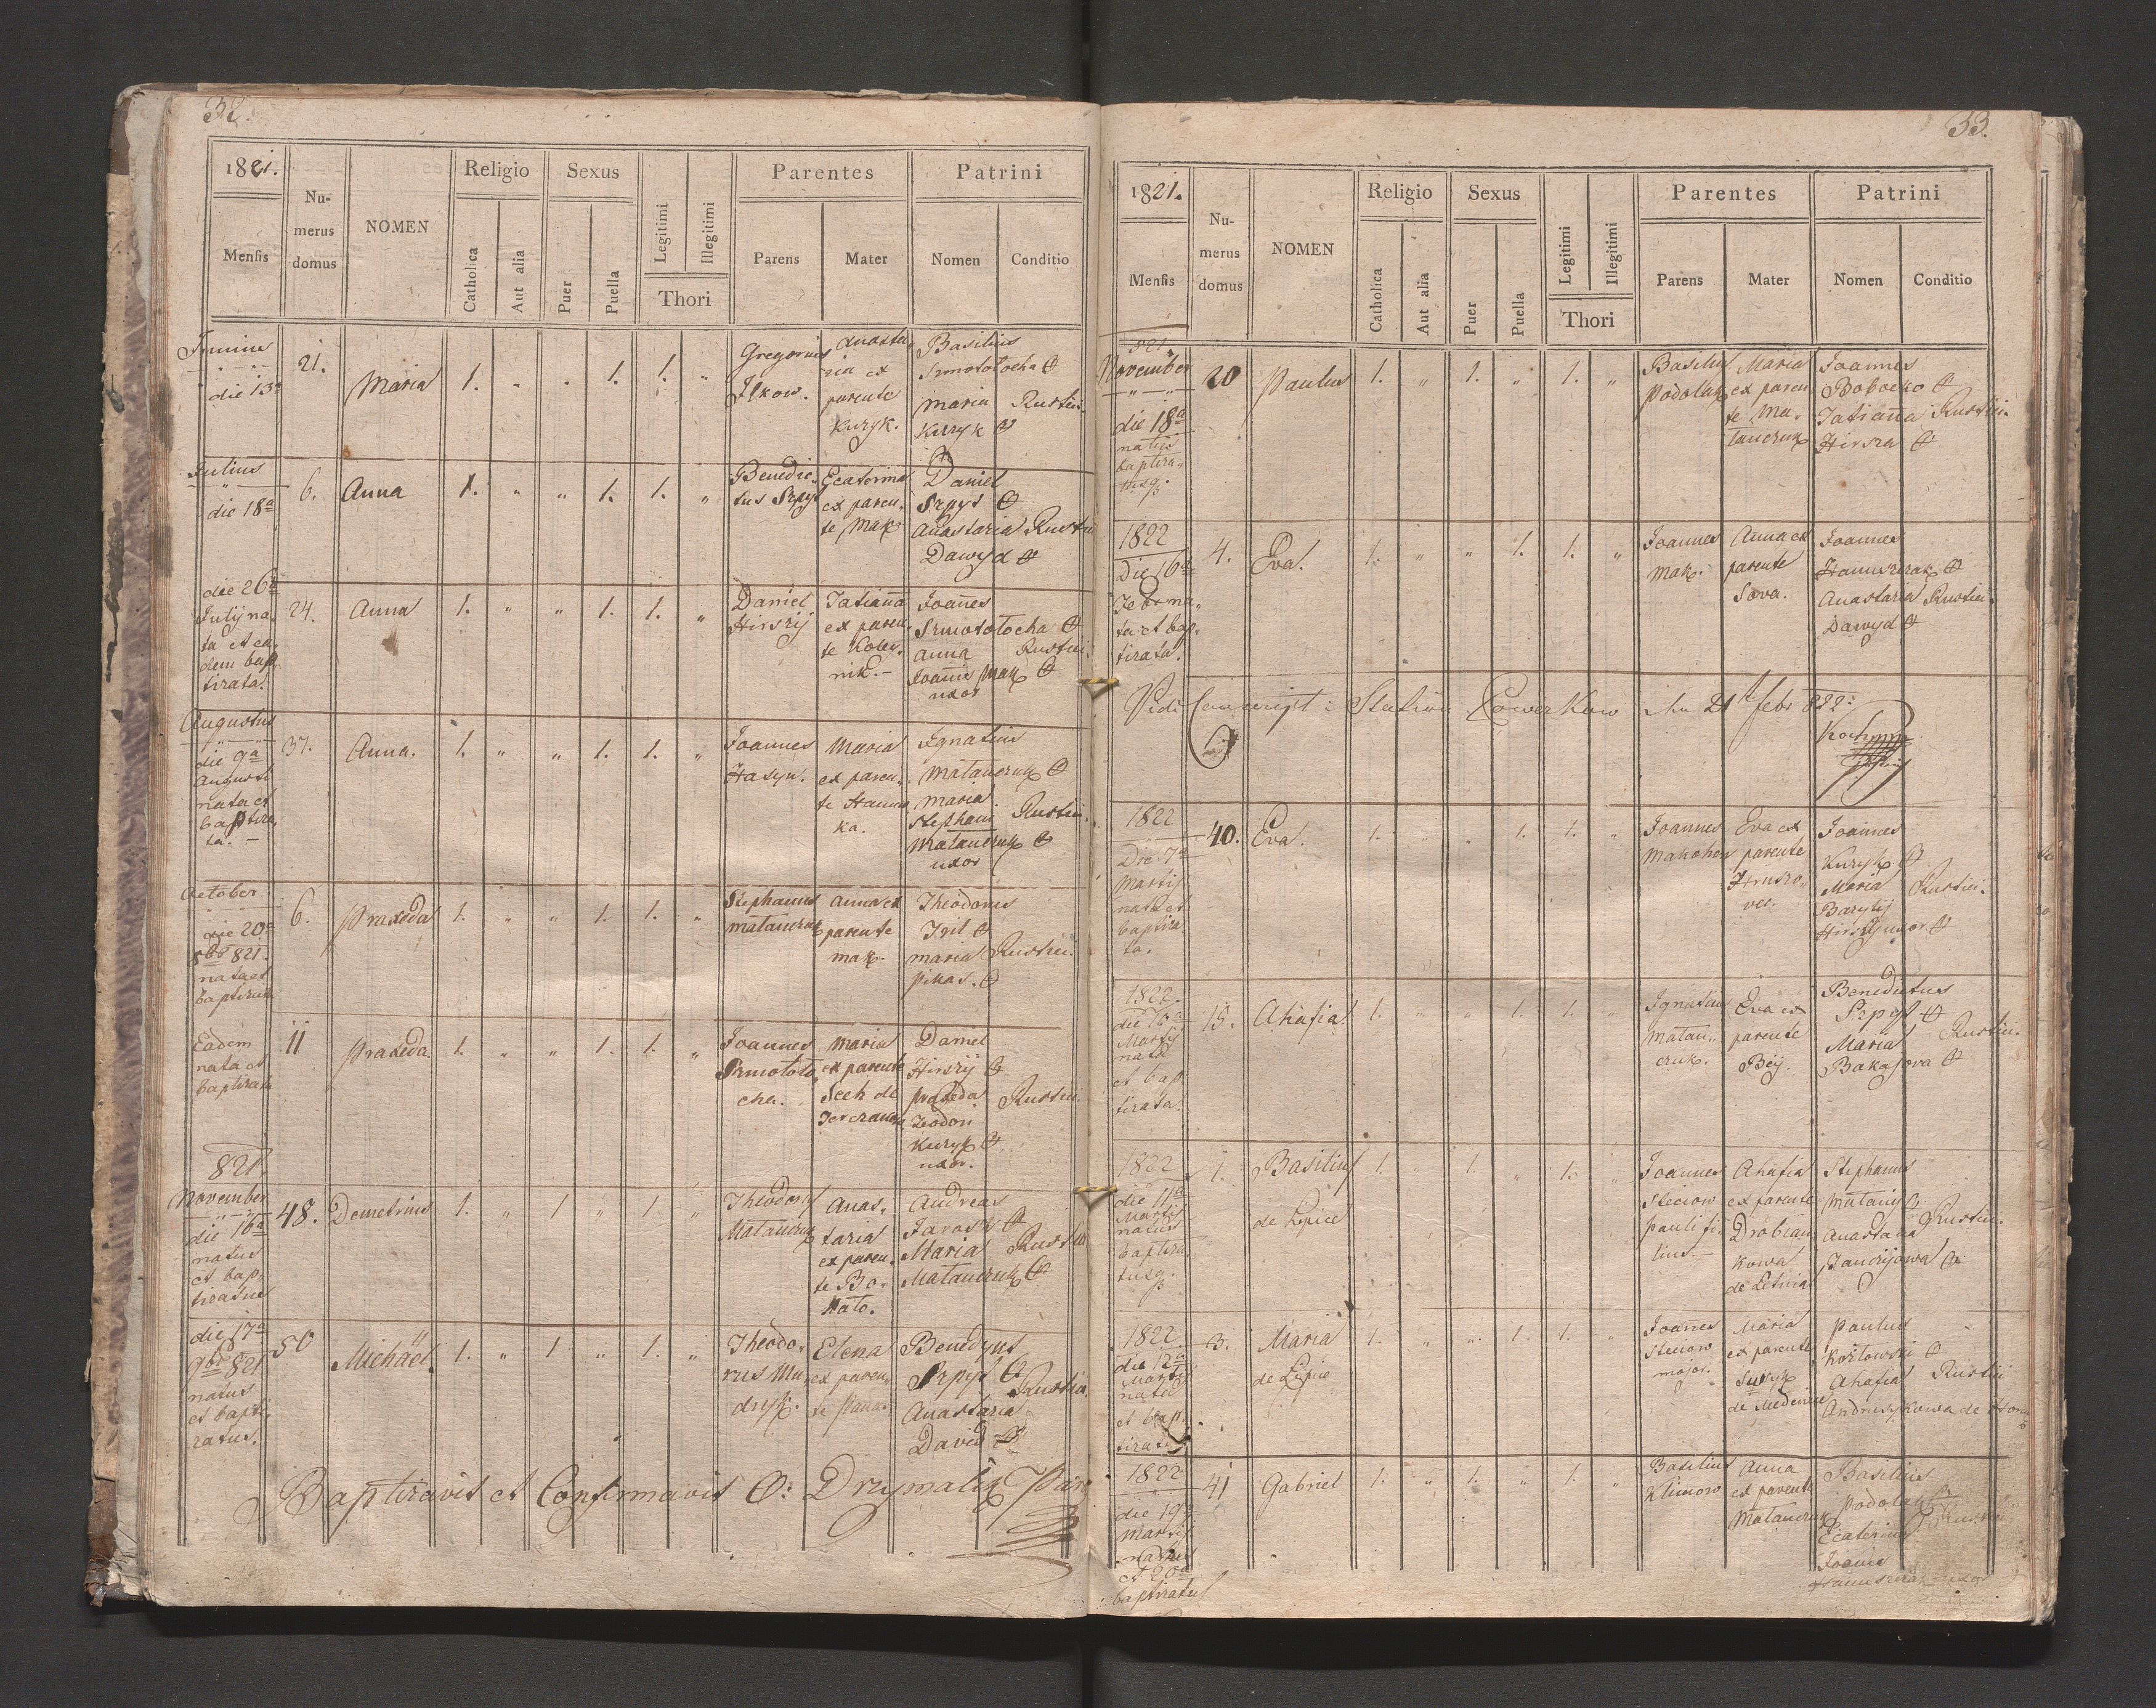 32.
1821.
Mensis
Nu-
merus
domus
NOMEN
Religio
Catholica
Aut alia
Sexus
Puer
Puella
Legitimi
Illegitimi
Thori
Parentes
Parens
Mater
Patrini
Nomen
Conditio
die 13a
21.
Maria
1. " " 1. 1. "
Gregorius
Ilkow.
Anasta-
sia ex
parente
Kuryk.
Basilius
Smototocha
Maria
Kuryk
Rustici
Julius
die 18a
6.
Anna
1. " " 1. 1. "
Benedic-
tus Szpyt
Ecaterina
ex paren-
te Mak
Daniel
Szpyt
Anastasia
Dawyd
Rustici
die 26a
Julij na-
ta et ea-
dem bap-
tizata.
24.
Anna
1. " " 1. 1. "
Daniel
Hirszij
Tatianna
ex paren-
te Koley-
nik. –
Joannes
Srmototocha
Anna
Joannis Mak
uxor
Rustici.
Augustus
die 9a
Augusti
nata et
baptiza-
ta. –
37.
Anna.
1. " " 1. 1. "
Joannes
Hasyn.
Maria
ex paren-
te Hanus
ka.
Ignatius
Matanczuk
Maria
Stephani
Matanczuk
uxor
Rustici.
October
die 20a
8bris 821.
nata et
baptizata
6.
Praxeda
1. " " 1. 1. "
Stephanus
Matanczuk
Anna ex
parente
Mak.
Theodorus
Maria
Rustici.
Eadem
nata et
baptizata
11
Praxeda.
1. " " 1. 1. "
Joannes
Srmototo-
cha.
Maria
ex parente
Daniel
Hirszij
Praxeda
Teodori
Kuryk
uxor.
Rustici.
821.
November
die 16a
natus
et bap-
tizatus
48.
Demetrius
1. " 1 " 1 "
Theodorus
Matanczuk
Anas-
tasia
ex paren-
te Bo-
Andreas
Maria
Matanczuk
Rustici
die 17a
9bris 821
natus
et bapti-
zatus.
50
Michaël.
1. " 1 " 1. "
Theodo-
rus Mu-
dryk.
Elena
ex paren-
te
Benedyns
Szpyt
Anastasia
David
Rustici
Baptizavit et Confirmavit O: Drzymalik Par
33.
1821.
Mensis
Nu-
merus
domus
NOMEN
Religio
Catholica
Aut alia
Sexus
Puer
Puella
Legitimi
Illegitimi
Thori
Parentes
Parens
Mater
Patrini
Nomen
Conditio
821
November
die 18a
natus
baptiza-
tusq.
20
Paulus
1. " 1. " 1. "
Basilius
Podolak
Maria
ex paren-
te Ma-
tanczuk
Joannes
Boboczko
Tatianna
Hirsza
Rustici.
1822
Die 16a
Febr na-
ta et bap-
tizata.
4.
Eva.
1. " " 1. 1. "
Joannes
Mak.
Anna ex
parente
Sova.
Joannes
Hanuszczak
Anastasia
Dawyd
Rustici.
Vidi
febr 822:
1822
Die 7a
Martij
nata et
baptiza-
ta.
40.
Eva.
1. " " 1. 1. "
Joannes
Makohon
Eva ex
parente
Joannes
Kuryk
Maria
Basylij
Hirszij uxor
Rustici.
1822
Martij
nata
et bap-
tizata.
15.
Ahafia
1. " " 1. 1. "
Ignatius
Matan-
czuk.
Eva ex
parente
Bey.
Benedictus
Szpyt
Maria
Bakajova
Rustici.
1822
die 11a
Martij
natus
baptiza-
tusq.
1.
Basilius
de Lipice
1. " 1. " 1. "
Joannes
Steciow
Pauli fi-
lius. –
Ahafia
ex parente
Drobian
kowa
de Letnia
Stephanus
Anastasia
Rustici.
1822
die 12a
Martij
nata
et bap-
tizata
3.
Maria
de Lipice
1. " " 1. 1. "
Joannes
Steciow
major.
Maria
ex parente
de Medenice
Paulus
Kozlowski
Ahafia
Andrusykowa de
Rustici
1822
die 19a
Martij
natus
et 20a
baptizatus
41
Gabriel
1. " 1. " 1. "
Basilius
Klimow
Anna
ex parente
Matanczuk
Basilius
Podolak
Ecaterina
Joannis
Hanuszczak uxor
Rustici